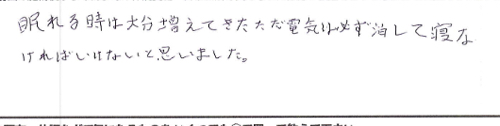 眠れる時は大分増えてきたただ電気は必ず消して寝な
ければいけないと思いました。